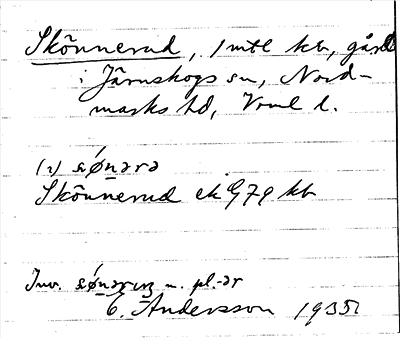 Skönnerud, 1 mtl kr, gård
i Järnskogs sn, Nord-
marks hd, Vrml l.
(2) ʂǿnərə
Skönnerud ek G79 kr
Inv. ʂǿnəriŋ m. pl. -ər
E. Andersson 1935